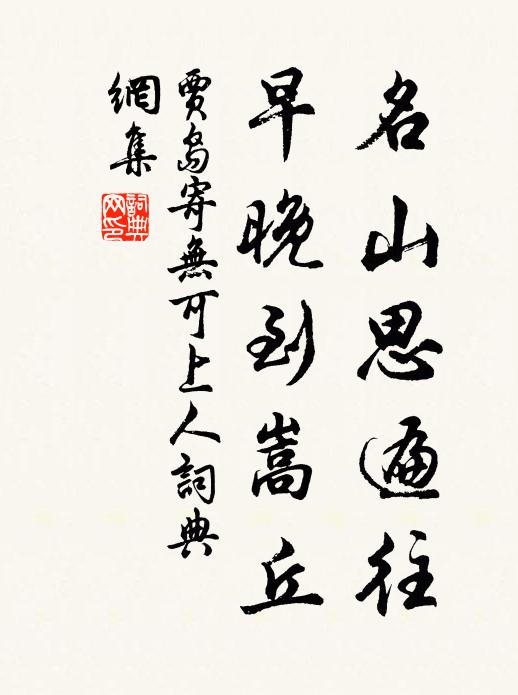 名山思遍往
早晚到嵩丘
賈島寄無可上人詞典
網集
詞典
网印